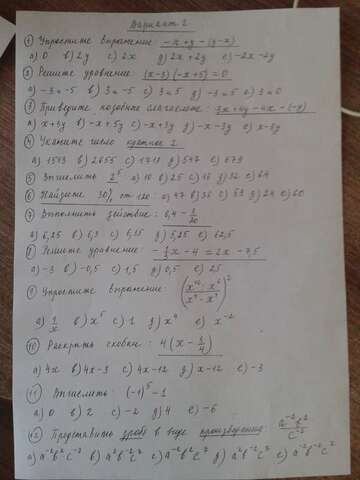 Вариант 2
① Упростите выражение: -x+y-(y-x)
а) 0 в) 2y с) 2x д) 2x+2y е) -2x-2y
② Решите уравнение: (x-3)(-x+5)=0
а) -3 и -5 в) 3 и -5 с) 3 и 5 д) -3 и 5 е) 3 и 0
③ Приведите подобные слагаемые: 3x+4y-4x-(-y)
а) x+3y в) -x+5y с) -x+3y д) -x-3y е) x-3y
④ Укажите число кратное 2
а) 1543 в) 2655 с) 1718 д) 547 е) 679
⑤ Вычислить 2⁵ а) 10 в) 25 с) 16 д) 32 е) 64
⑥ Найдите 30% от 120: а) 47 в) 36 с) 53 д) 24 е) 60
⑦ Выполнить действие: 6,4 - 3/20
а) 6,25 в) 6,3 с) 6,15 д) 5,25 е) 62,5
⑧ Решите уравнение: x - 4 = 2x - 7,5
а) -3 в) -0,5 с) 1,5 д) 0,5 е) 25
⑨ Упростите выражение:
⑩ Раскрыть скобки: 4(x - 3/4)
а) 4x в) 4x-3 с) 4x-12 д) x-12 е) -3
⑪ Вычислить: (-1)⁵-1
а) 0 в) 2 с) -2 д) 4 е) -6
⑫ Представить дробь в виде произведения: